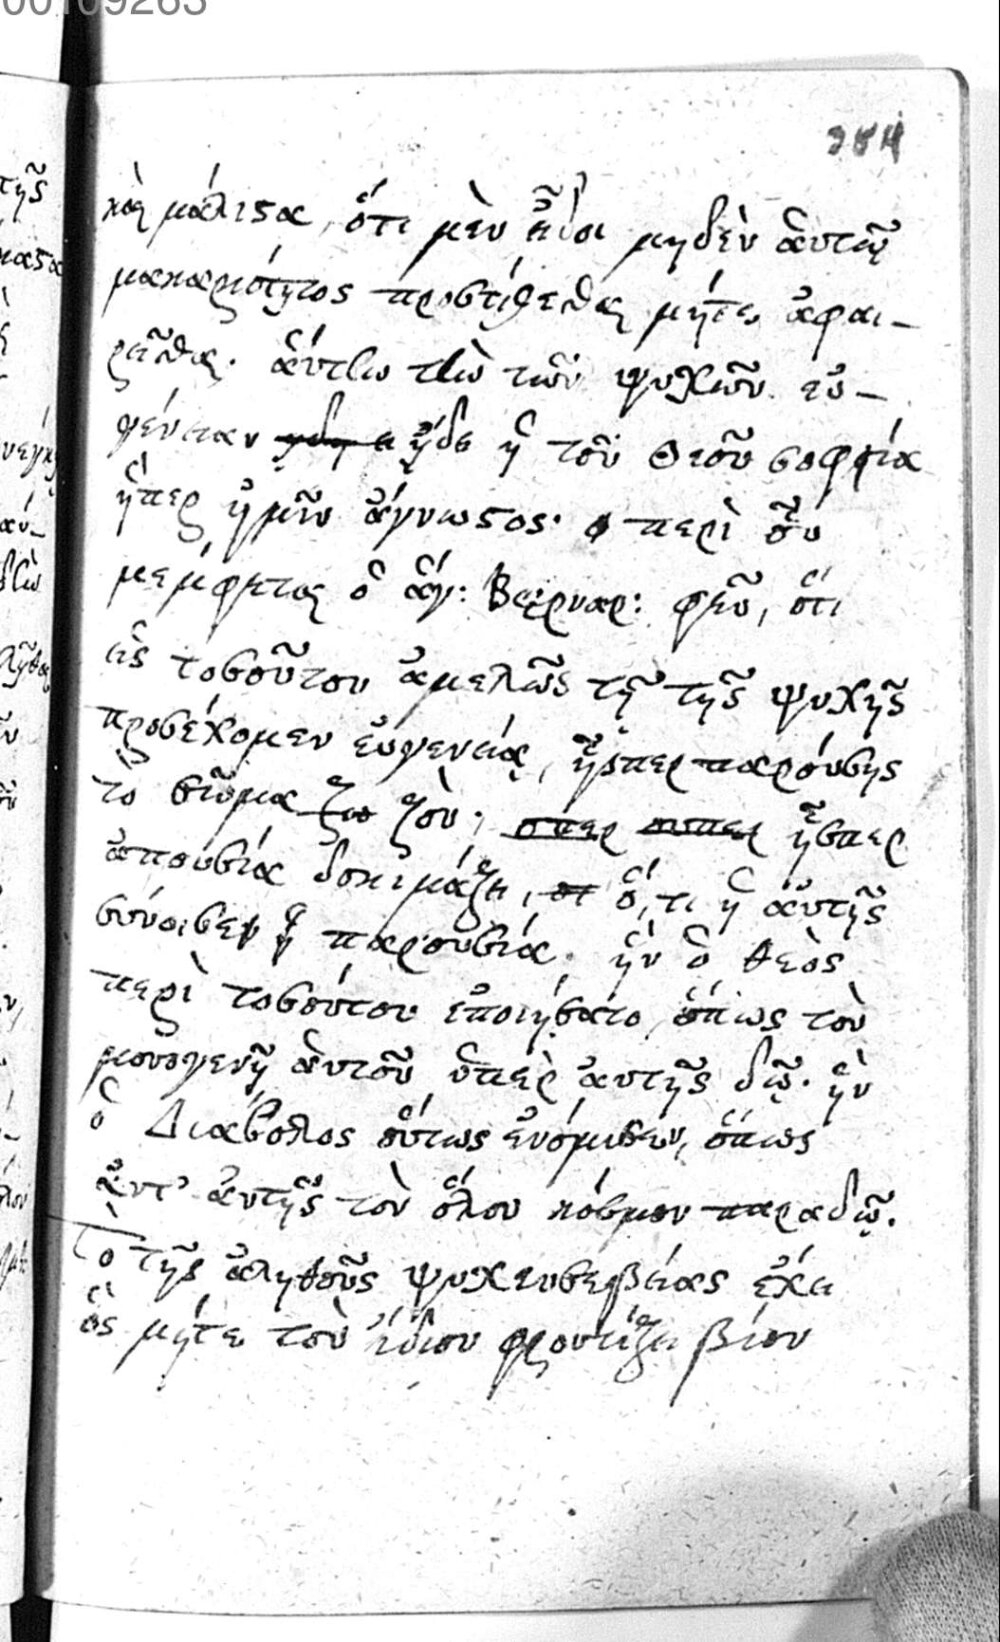 00109263
284
καὶ μάλιστα, ὅτι μὲν ᾔδει μηδὲν ἀυτῷ
μακαριότητος προστίθεσθαι μήτε ἀφαι-
ρεῖσθαι. ἀύτὴν τὴν τῶν ψυχῶν εὐ-
γένειαν ᾔδε ἡ τοῦ Θεοῦ σοφία
ἥπερ ἡμῖν ἄγνωστος· περὶ οὗ
μέμφεται ὁ ἅγ: Βερναρ: φεῦ, ὅτι
εἰς τοσοῦτον ἀμελῶς τῇ τῆς ψυχῆς
προσέχομεν εὐγενείᾳ, ἧσπερ παρούσης
τὸ σῶμα ζῇ ἧσπερ
ἀπουσίᾳ δοκιμάζει, ὅ, τι ἡ ἀυτῆς
παρουσία. ἣν ὁ θεὸς
περὶ τοσούτου ἐποιήσατο, ὅπως τὸν
μονογενῆ ἀυτοῦ ὑπὲρ ἀυτῆς δῷ. ἣν
ὁ Διάβολος οὕτως ἐνόμισεν, ὅπως
ἀντ' ἀυτῆς τὸν ὅλον κόσμον παραδῷ.
Τὸ τῆς ἀληθοῦς ψυχευσεβείας ἔχει
ὃς μήτε τοῦ ἰδίου φροντίζει βίου